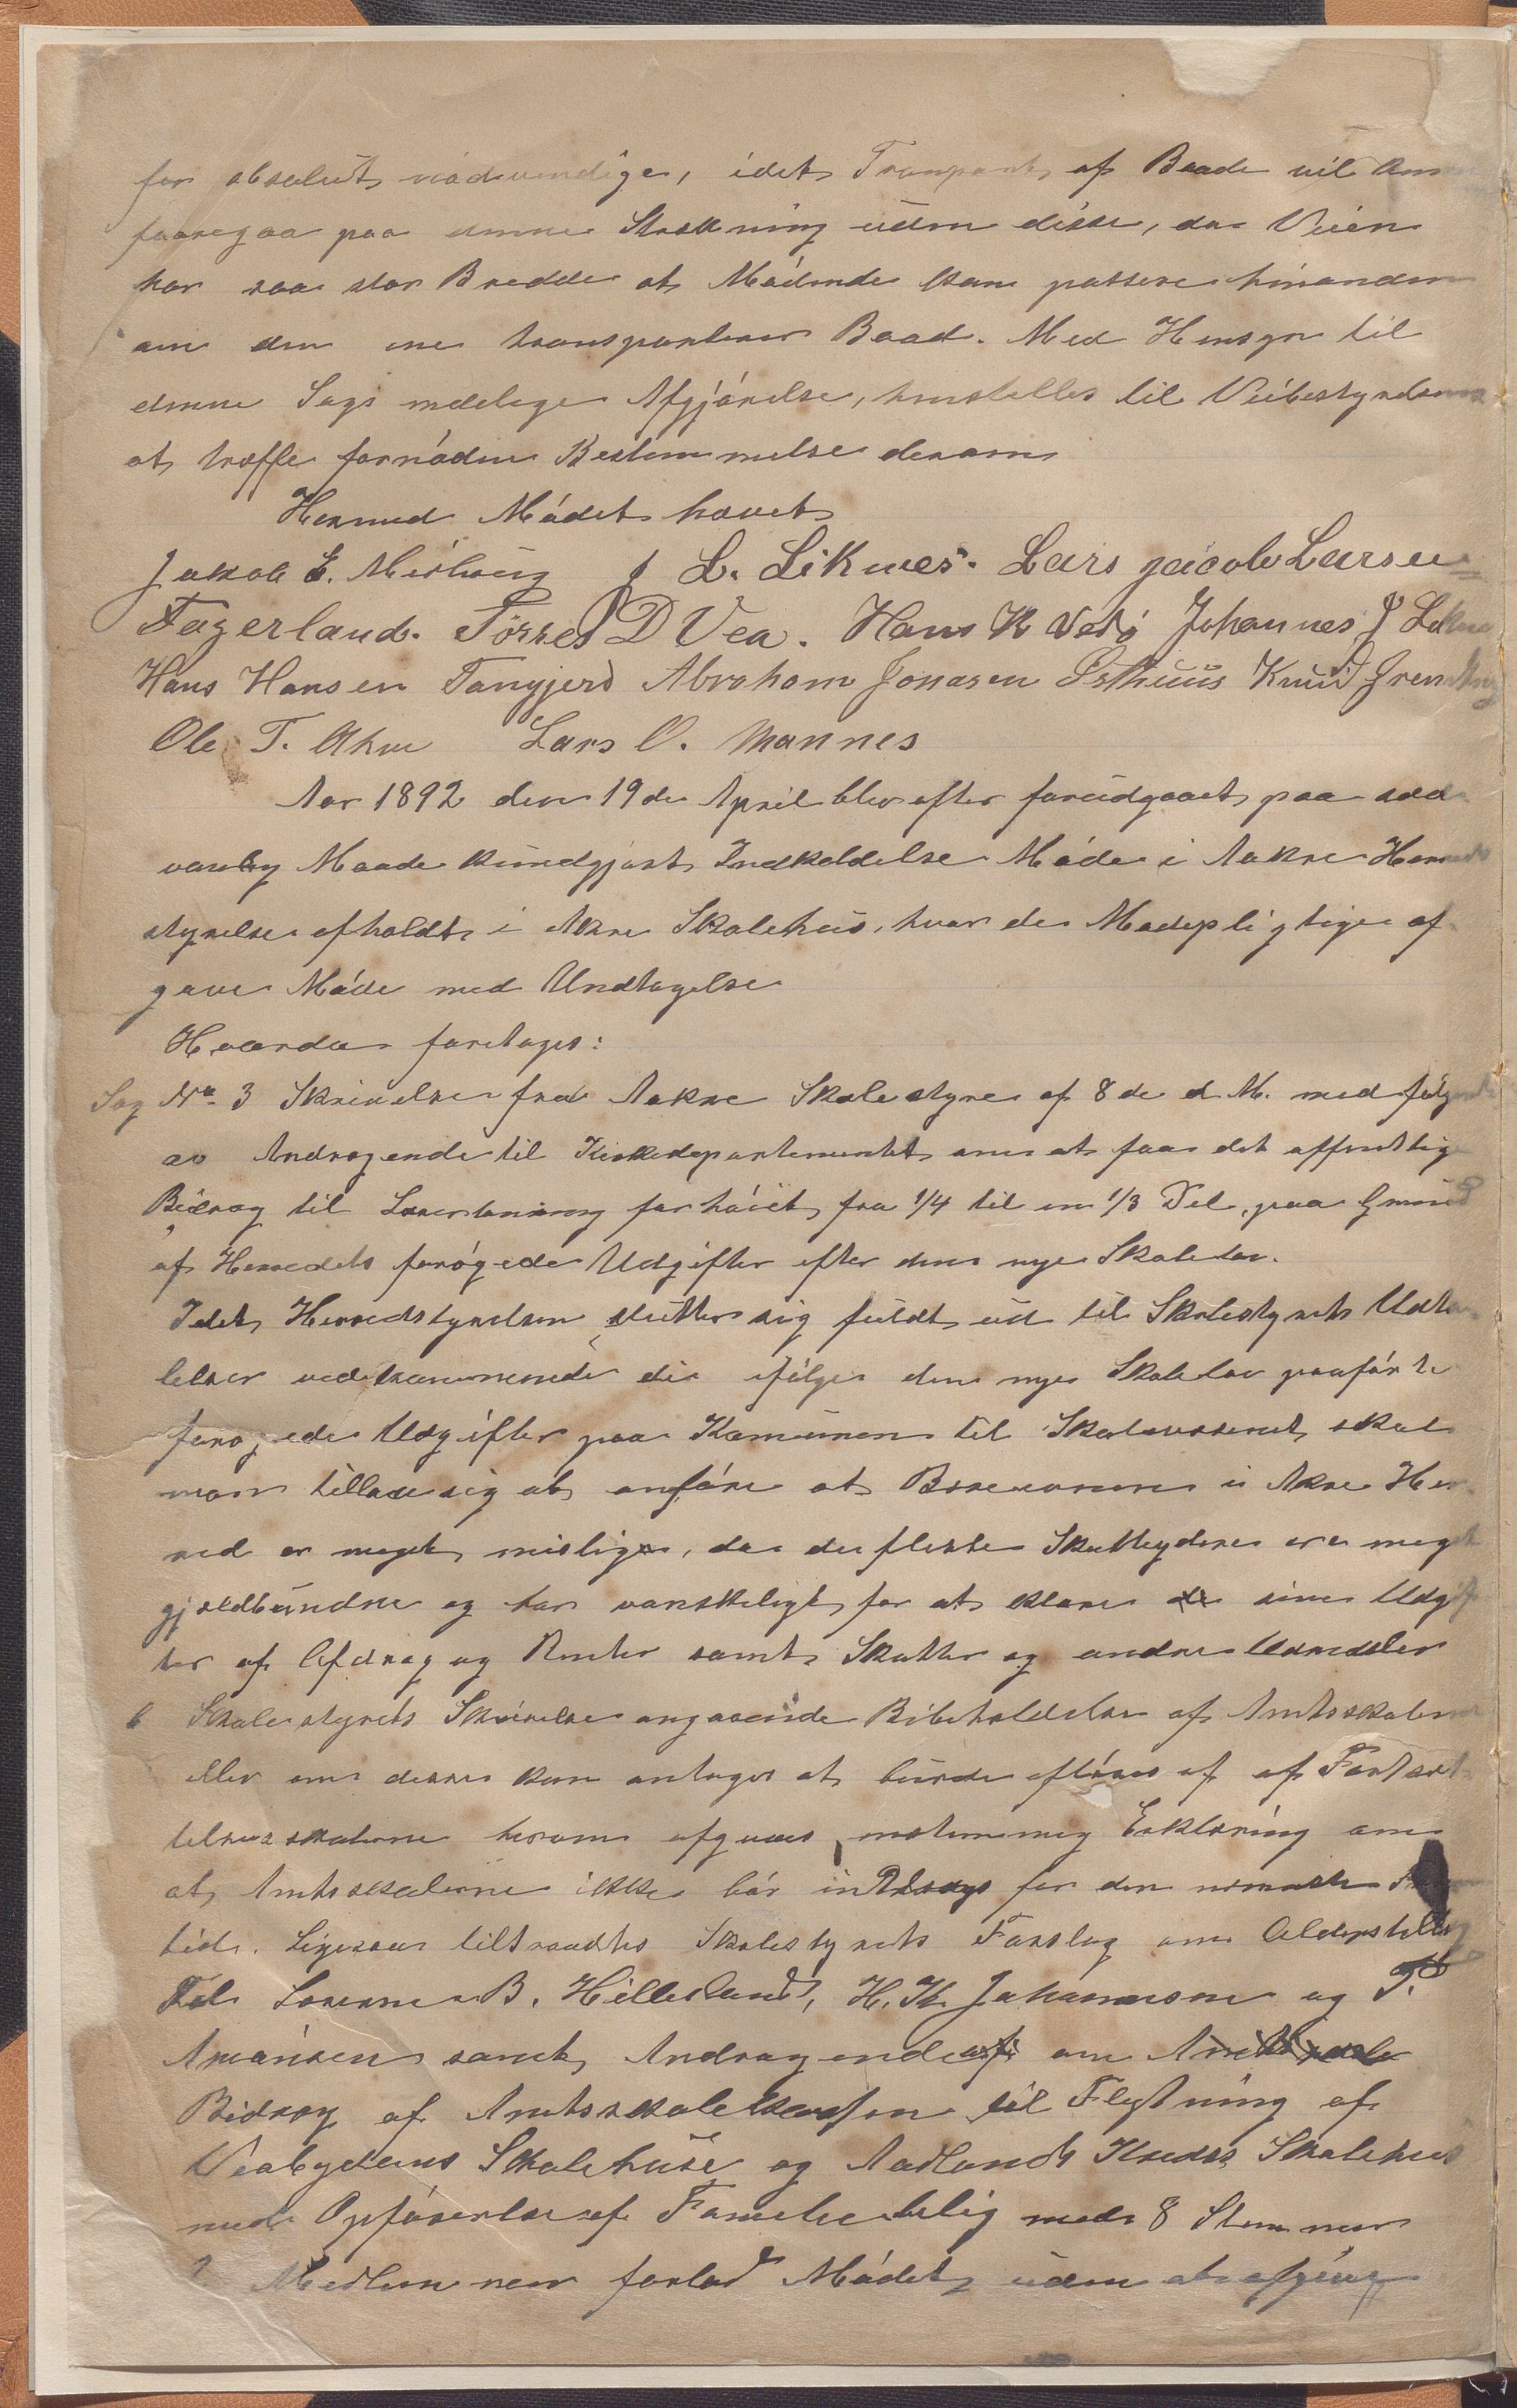 for absolut nødvendige, idet Transport af Baade vil kun
foregaa paa denne Strækning uden disse, da Veien
har saa stor Bredde at Mødende kan passere hinanden
om den ene transporterer Baad. Med Hensyn til
denne Sags endelige Afgjørelse, henstilles til Veibestyrelsen
at træffe fornøden Bestemmelse derom
Hermed Mødet hævet
Jakob E. Miehoug J L. Liknes. Lars Jacob Larsen
Fagerland. Törres D Vea. Hans K Vedø Johannes J Liknes
Hans Hansen Tangjerd Abraham Jonasen Østhuus Knud
Ole T. Akre Lars O. Mannes
Aar 1892 den 19de April blev efter forudgaaet paa sæd
vanlig Maade kundgjort Indkaldelse Møde i Aakre Herreds
styrelse afholdt i Akre Skolehus, hvor de Mødepligtige af
gave Møde med Undtagelse
Hvorda foretages:
Sag No 3 Skrivelse fra Aakre Skolestyre af 8de d. M. med følgende
av Andragende til Kirkedepartementet om at faa det offentlige
Bidrag til Lærerlønning forhøiet fra 1/4 til en 1/3 Del, paa Grund
af Herredets forøgede Udgifter efter den nye Skolelov.
Idet Herredstyrelsen slutter sig fuldt ud til Skolestyrets Udta
lelser vedkommende de ifølge den nye Skolelov paaførte
forøgede Udgifter paa Komunen til Skolevæsenet, skal
man tillade sig at anføre at Breevnerne i Akre Her
red er meget mislige, da de fleste Skatteydere ere meget
gjældbundne og har vanskeligt for at klare de sine Udgif
ter af Afdrag og Renter samt Skatter og andre Udredsler
6 Skolestyrets Skrivelse angaaende Bibeholdelse af Amtsskolen
eller om denne kan antages at burde afløses af af Fortsæt
telsesskolerne herom afgaves enstemmig Erklæring om
at Amtsskolerne ikke bør inddrages for den nærmeste Frem
tid. Ligesaa tiltraadtes Skolestyrets Forslag om Alderstillæg
Til Lærerne B. Hillesland, H. K. Johannesen og T.
Amansen samt Andragende af om Amtsskole
Bidrag af Amtsskolekassen til Flytning af
Veabygdens Skolehuse og Aadlands Kreds Skolehus
med Opførelse af Familiebolig med 8 Stemmer
2 Medlemmer forlod Mødet uden at afgive